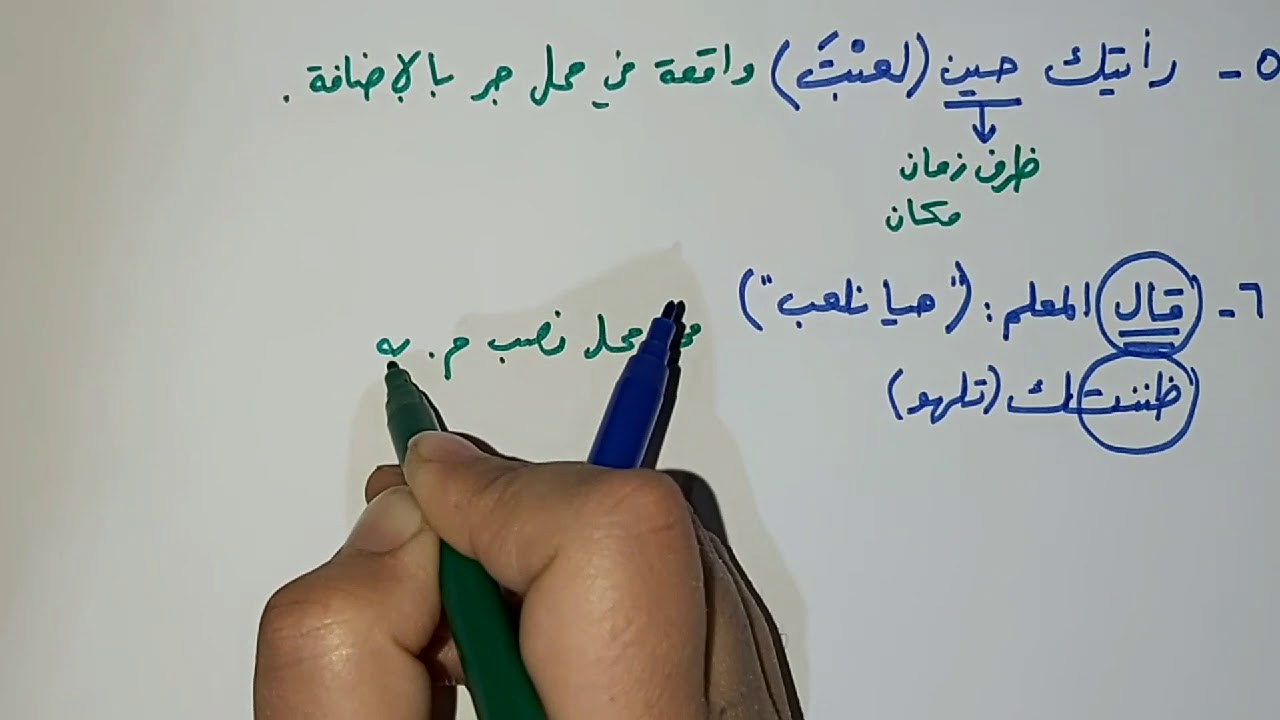 ٥- رأيتك حين (لعبْتَ) واقعة في محل جر بالإضافة .
ظرف زمان
مكان
٦- قال المعلم : ("هيا نلعب")
محل نصب م .
ظننتك (تلهو)